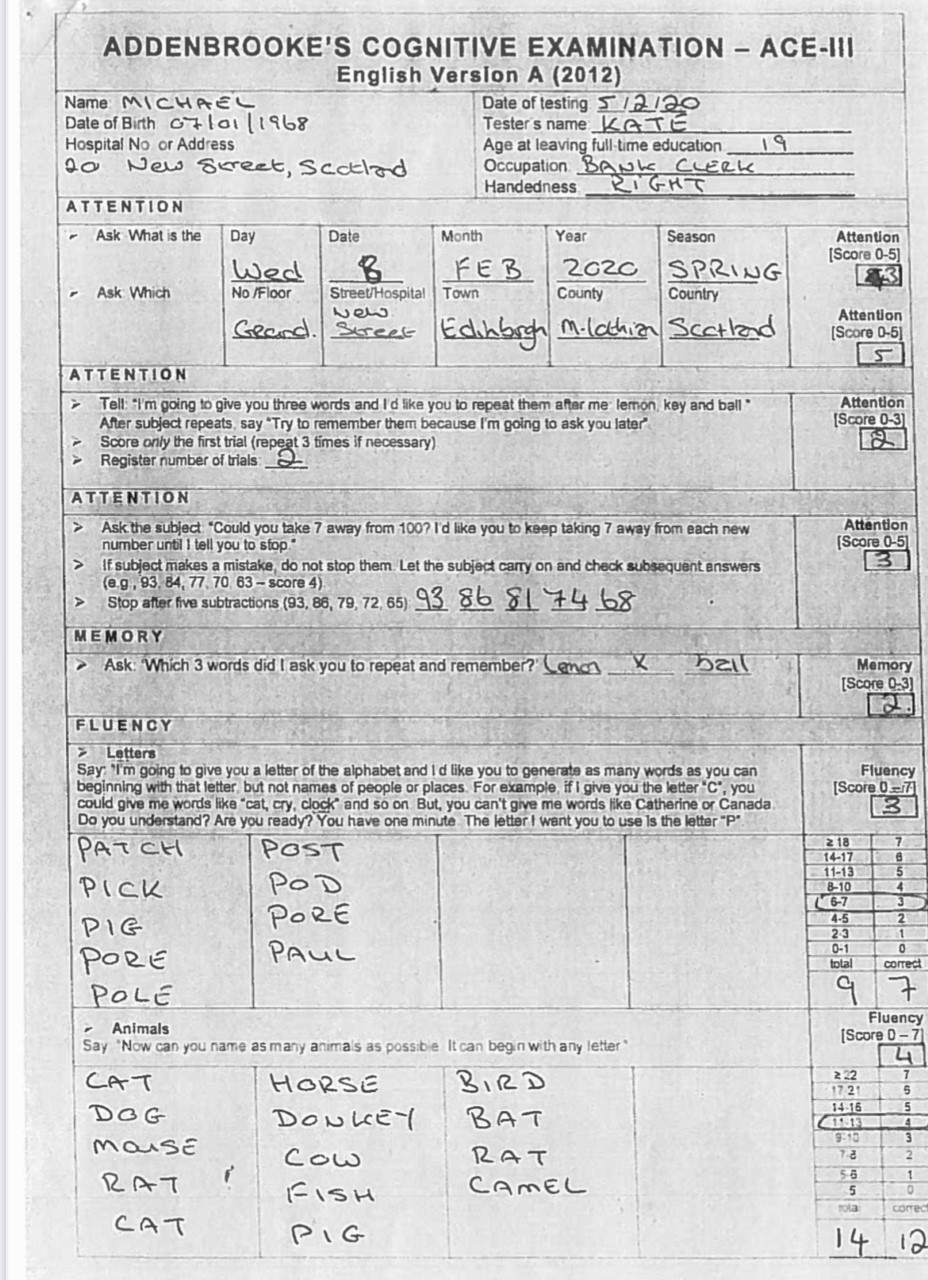 ADDENBROOKE'S COGNITIVE EXAMINATION – ACE-III
English Version A (2012)
Name: MICHAEL
Date of Birth 07/01/1968
Hospital No. or Address
20 New Street, Scotland
Date of testing 5/2/20
Tester's name: KATE
Age at leaving full-time education: 19
Occupation: BANK CLERK
Handedness: RIGHT
ATTENTION
Ask: What is the
Day
Date
Month
Year
Season
Attention
[Score 0-5]
Wed
8
FEB
2020
SPRING
3
Ask: Which
No./Floor
Street/Hospital
Town
County
Country
Attention
[Score 0-5]
New
Street
Edinborgh
M.lothian
Scotland
5
ATTENTION
Tell: "I'm going to give you three words and I'd like you to repeat them after me: lemon, key and ball."
After subject repeats, say "Try to remember them because I'm going to ask you later".
Score only the first trial (repeat 3 times if necessary).
Register number of trials: 2
Attention
[Score 0-3]
2
ATTENTION
Ask the subject: "Could you take 7 away from 100? I'd like you to keep taking 7 away from each new
number until I tell you to stop."
If subject makes a mistake, do not stop them. Let the subject carry on and check subsequent answers
(e.g., 93, 84, 77, 70, 63 – score 4).
Stop after five subtractions (93, 86, 79, 72, 65) 93 86 81 74 68
Attention
[Score 0-5]
3
MEMORY
Ask: 'Which 3 words did I ask you to repeat and remember?' Lemon X ball
Memory
[Score 0-3]
2
FLUENCY
Letters
Say: "I'm going to give you a letter of the alphabet and I'd like you to generate as many words as you can
beginning with that letter, but not names of people or places. For example, if I give you the letter "C", you
could give me words like "cat, cry, clock" and so on. But, you can't give me words like Catherine or Canada.
Do you understand? Are you ready? You have one minute. The letter I want you to use is the letter "P".
Fluency
[Score 0 – 7]
3
PATCH
PICK
PIG
PORE
POLE
POST
POD
PORE
PAUL
≥ 18 7
14-17 6
11-13 5
8-10 4
6-7 3
4-5 2
2-3 1
0-1 0
total correct
9 7
Animals
Say: "Now can you name as many animals as possible. It can begin with any letter."
Fluency
[Score 0 – 7]
4
CAT
DOG
MOUSE
RAT
CAT
HORSE
DONKEY
COW
FISH
PIG
BIRD
BAT
RAT
CAMEL
≥ 22 7
17-21 6
14-16 5
11-13 4
9-10 3
7-8 2
5-6 1
5 0
total correct
14 12